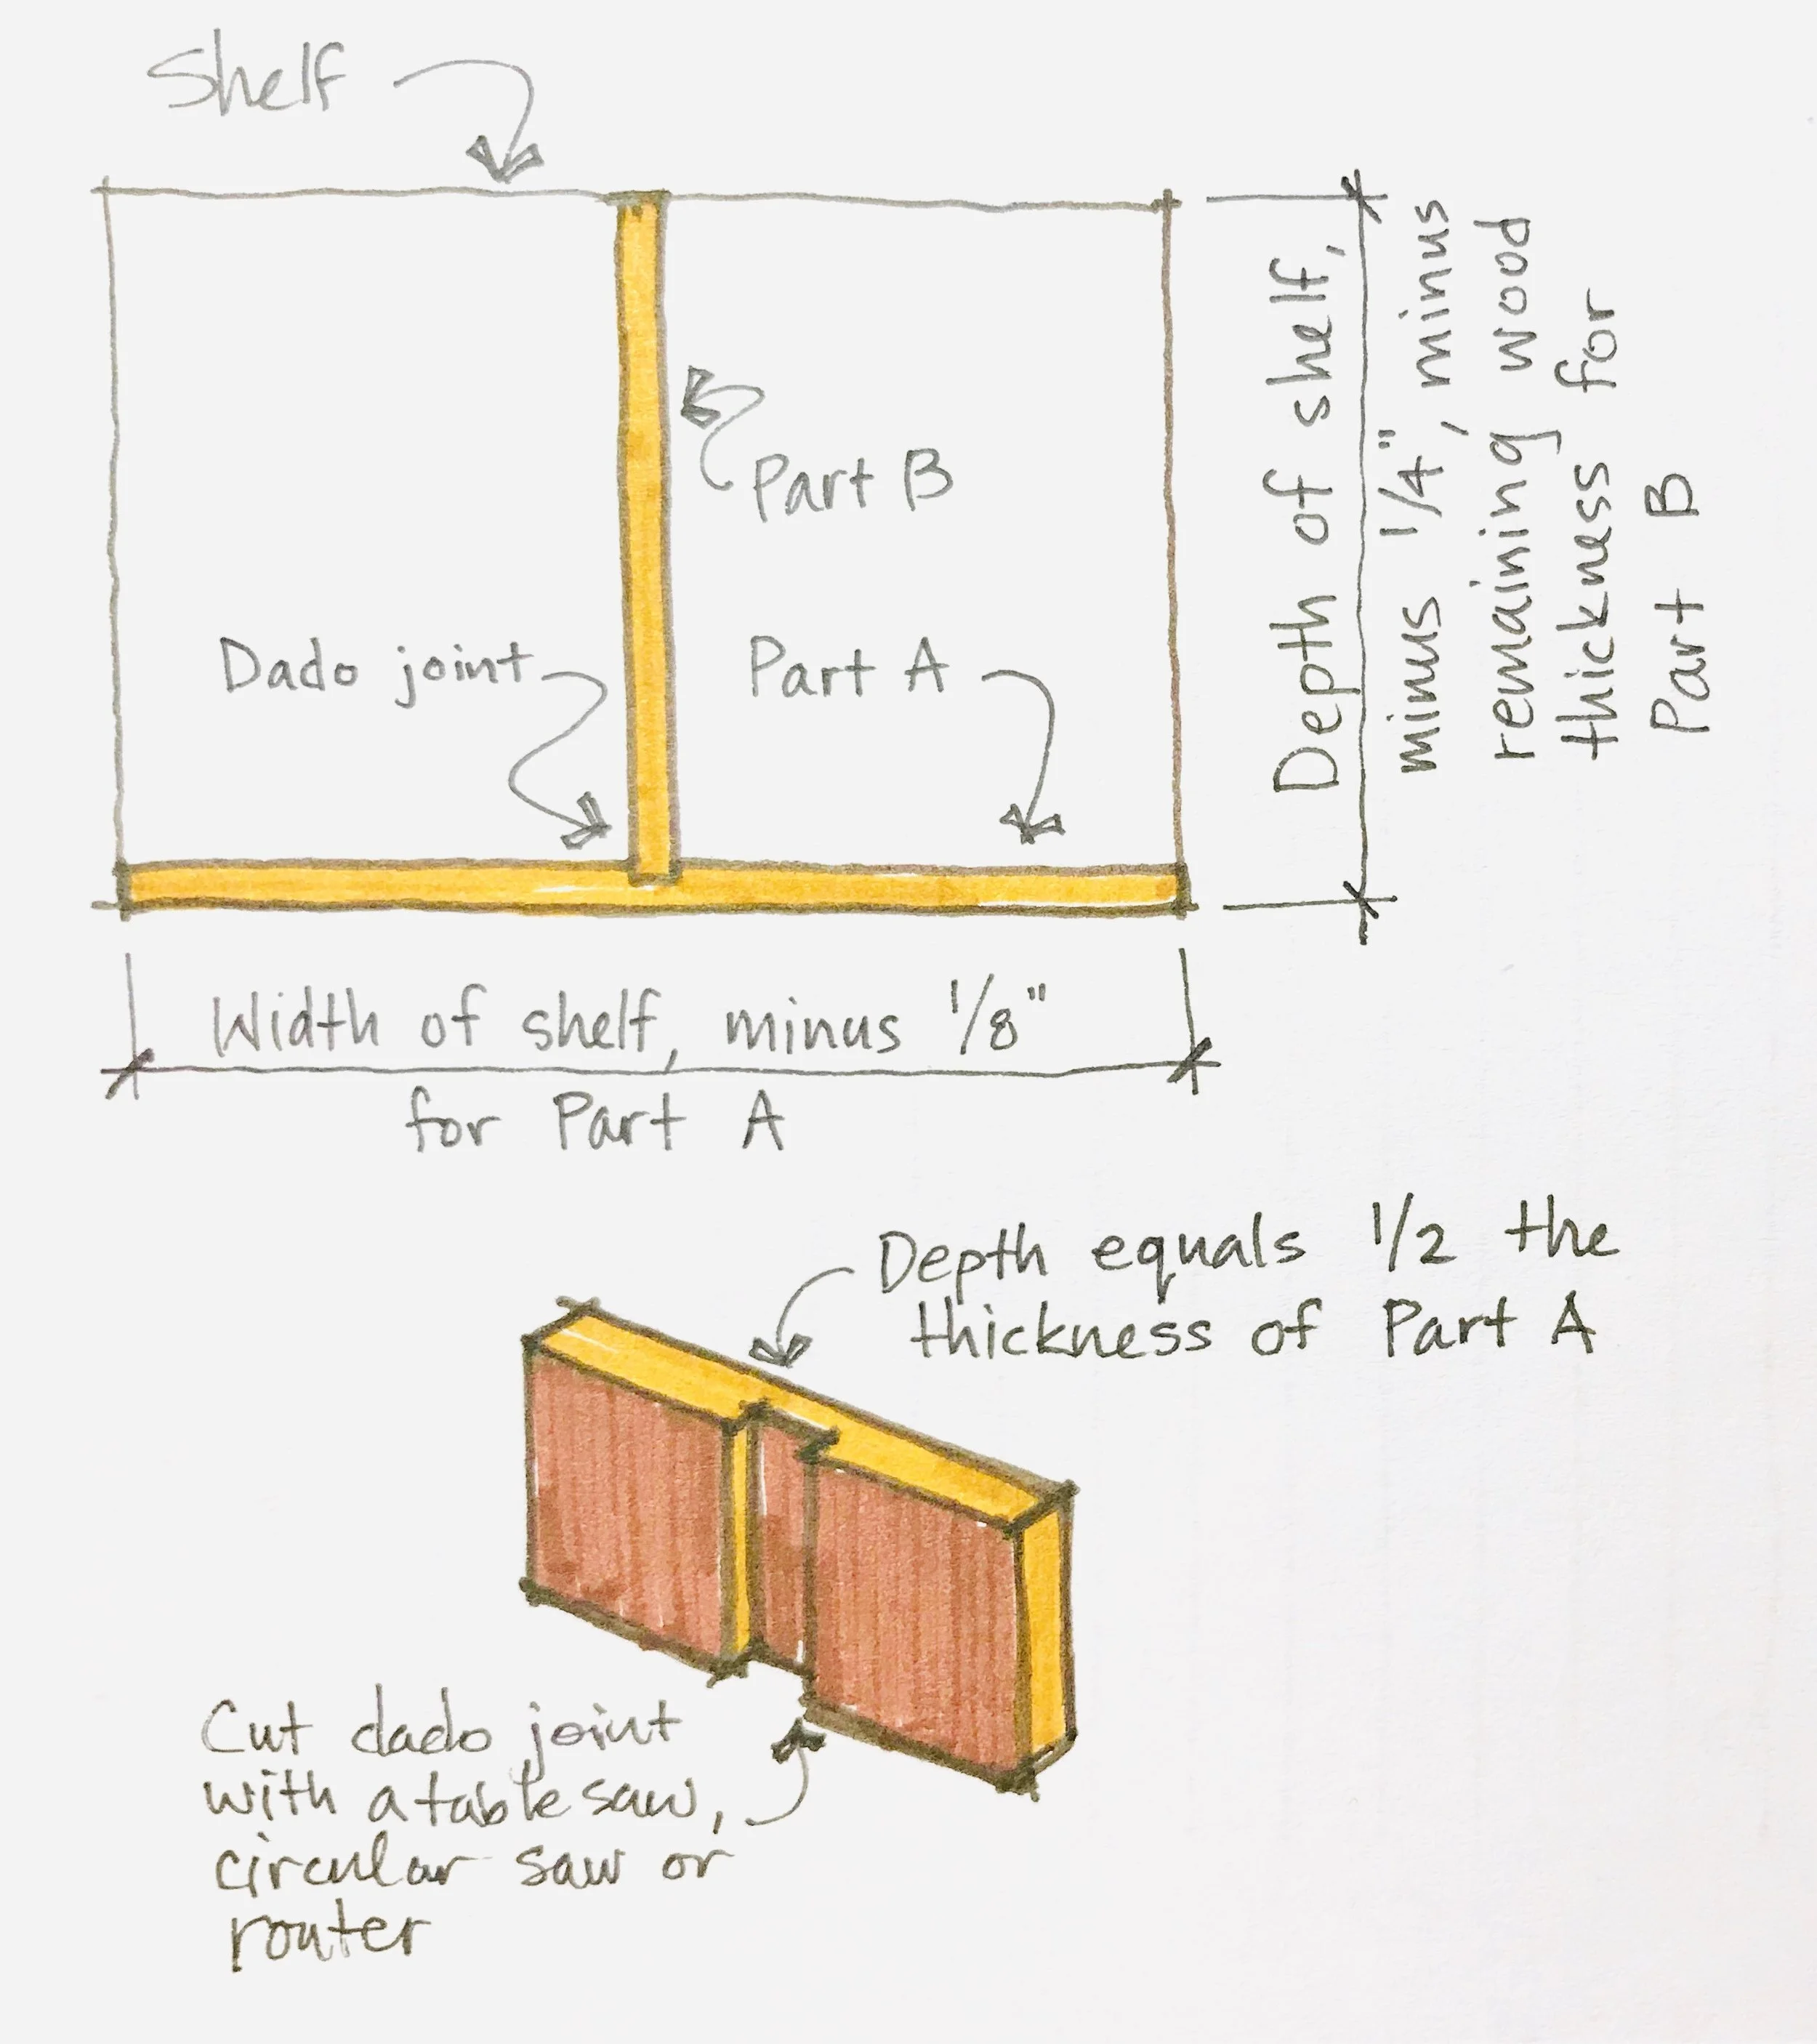 Shelf
Part B
Dado joint
Part A
Depth of shelf,
minus 1/4", minus
remaining wood
thickness for
Part B
Width of shelf, minus 1/8"
for Part A
Depth equals 1/2 the
thickness of Part A
Cut dado joint
with a table saw,
circular saw or
router